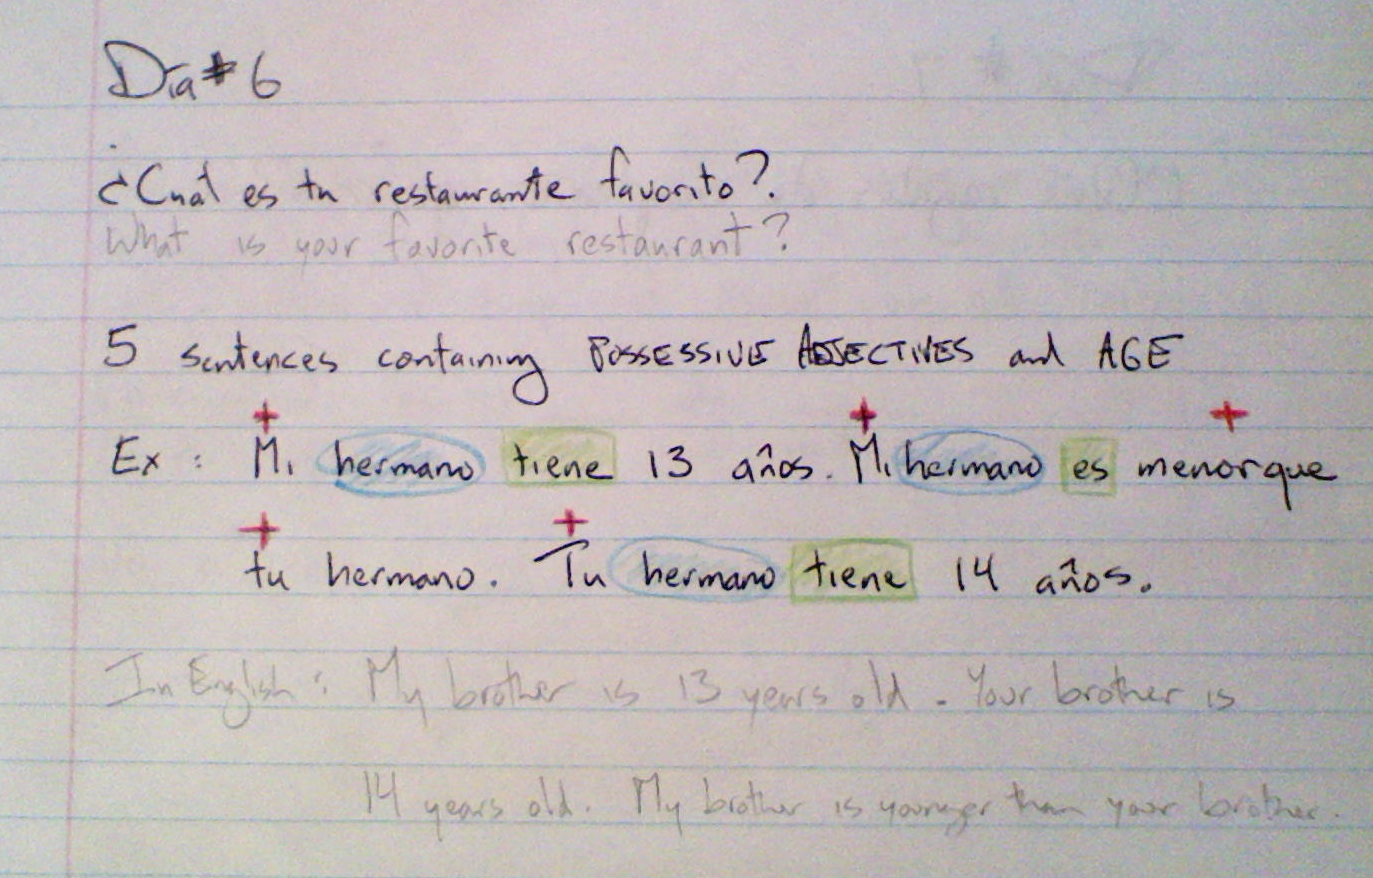 Día # 6
¿Cuál es tu restaurante favorito?.
What is your favorite restaurant?
5 sentences containing POSSESSIVE ADJECTIVES and AGE
Ex : Mi hermano tiene 13 años. Mi hermano es menor que
tu hermano. Tu hermano tiene 14 años.
In English : My brother is 13 years old. Your brother is
14 years old. My brother is younger than your brother.